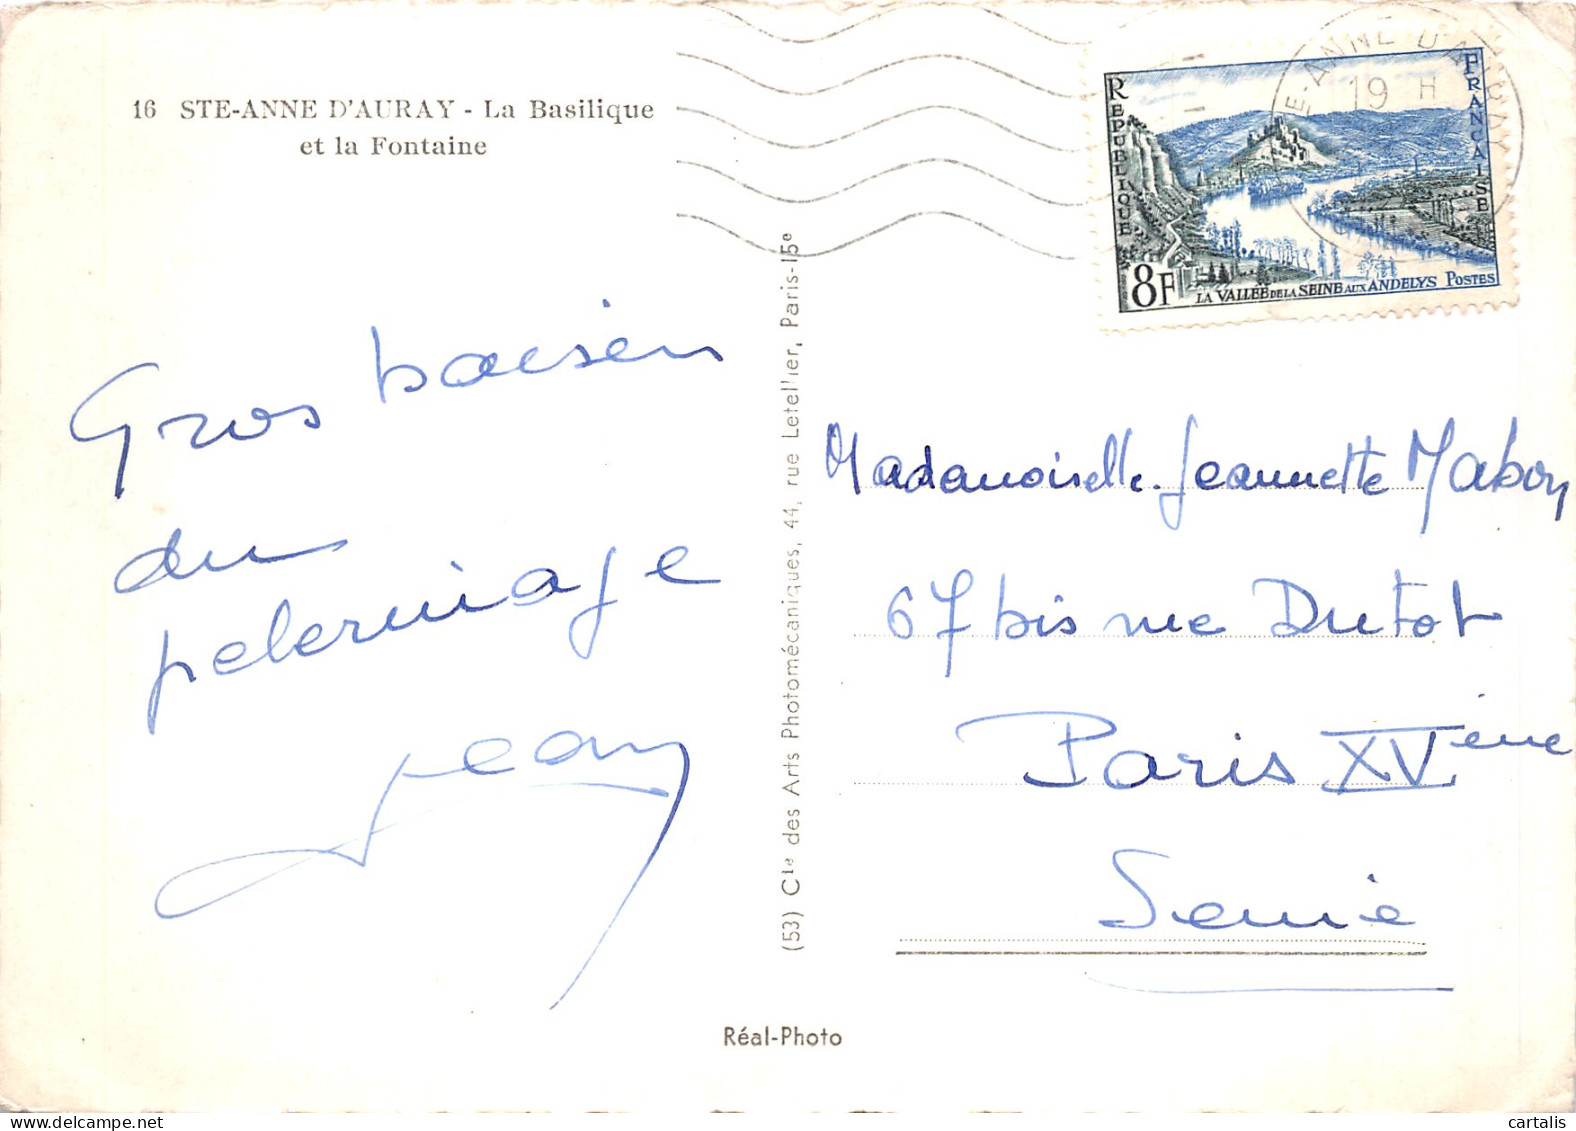 16 STE-ANNE D'AURAY - La Basilique
et la Fontaine
Gros baisers
du
pelerinage
Jean
(53) Cie des Arts Photomécaniques, 44, rue Letellier, Paris-15e
Réal-Photo
E-ANNE D'AURAY
19 H
REPUBLIQUE
FRANCAISE
8F
LA VALLÉE DE LA SEINE AUX ANDELYS POSTES
Mademoiselle Jeannette Mabon
67 bis rue Dutot
Paris XVème
Seine
cartalis